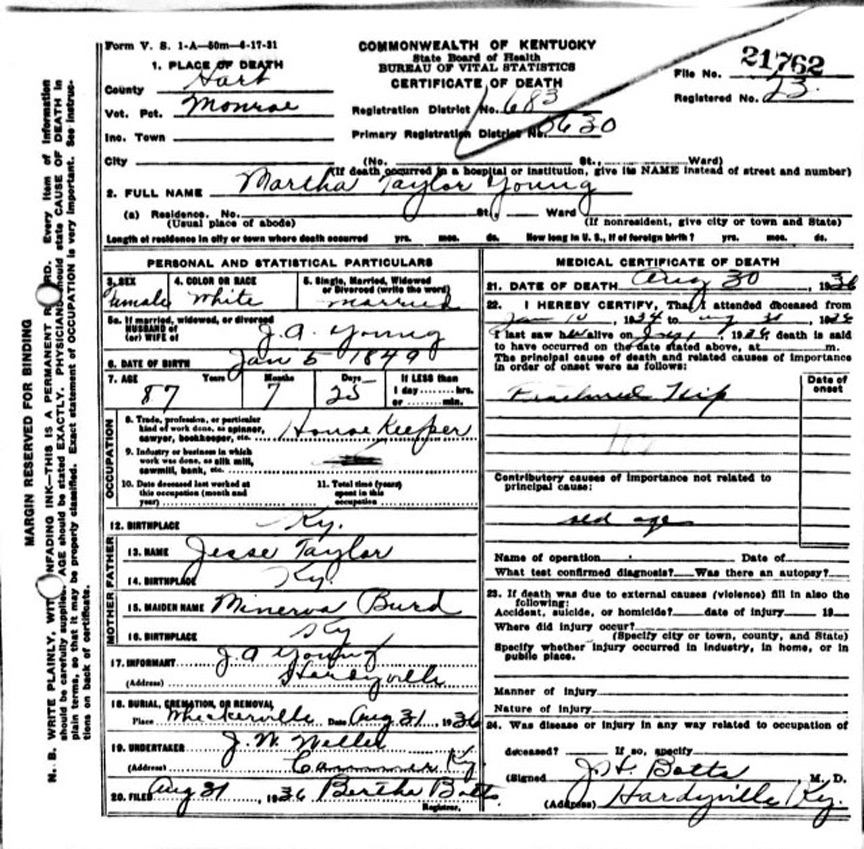 Form V. S. 1-A—50m—6-17-31
COMMONWEALTH OF KENTUCKY
State Board of Health
BUREAU OF VITAL STATISTICS
CERTIFICATE OF DEATH
File No. 21762
Registered No. 23.
1. PLACE OF DEATH
County Hart
Vot. Pct. Monroe
Inc. Town
Registration District No. 683
Primary Registration District No. 5630
City (No. St., Ward)
(If death occurred in a hospital or institution, give its NAME instead of street and number)
2. FULL NAME Martha Taylor Young
(a) Residence. No. St., Ward
(Usual place of abode) (If nonresident, give city or town and State)
Length of residence in city or town where death occurred yrs. mos. ds. How long in U. S., if of foreign birth? yrs. mos. ds.
PERSONAL AND STATISTICAL PARTICULARS
3. SEX 4. COLOR OR RACE 5. Single, Married, Widowed
or Divorced (write the word)
Female White Married
5a. If married, widowed, or divorced
HUSBAND of
(or) WIFE of J. A. Young
6. DATE OF BIRTH Jan 5 1849
7. AGE Years Months Days If LESS than
87 7 25 1 day hrs.
or min.
OCCUPATION
8. Trade, profession, or particular
kind of work done, as spinner,
sawyer, bookkeeper, etc. House Keeper
9. Industry or business in which
work was done, as silk mill,
sawmill, bank, etc.
10. Date deceased last worked at
this occupation (month and
year)
11. Total time (years)
spent in this
occupation
12. BIRTHPLACE Ky.
FATHER
13. NAME Jesse Taylor
14. BIRTHPLACE Ky.
MOTHER
15. MAIDEN NAME Minerva Burd
16. BIRTHPLACE Ky
17. INFORMANT J. A Young
(Address) Hardyville
18. BURIAL, CREMATION, OR REMOVAL
Place Date Aug 31, 1936
19. UNDERTAKER J. W.
(Address) Ky.
20. FILED Aug 31, 1936 Bertha Botts
Registrar.
MEDICAL CERTIFICATE OF DEATH
21. DATE OF DEATH Aug 30 1936
22. I HEREBY CERTIFY, That I attended deceased from
Jan 10, 1934 to Aug 30, 1936
I last saw her alive on , 1936, death is said
to have occurred on the date stated above, at m.
The principal cause of death and related causes of importance
in order of onset were as follows:
Date of
onset
Fractured Hip
Contributory causes of importance not related to
principal cause:
old age
Name of operation Date of
What test confirmed diagnosis? Was there an autopsy?
23. If death was due to external causes (violence) fill in also the
following:
Accident, suicide, or homicide? date of injury 19
Where did injury occur?
(Specify city or town, county, and State)
Specify whether injury occurred in industry, in home, or in
public place.
Manner of injury
Nature of injury
24. Was disease or injury in any way related to occupation of
deceased? If so, specify
(Signed J. H. Botts M. D.
(Address) Hardyville Ky.
MARGIN RESERVED FOR BINDING
N. B. WRITE PLAINLY, WITH UNFADING INK—THIS IS A PERMANENT RECORD. Every item of information
should be carefully supplied. AGE should be stated EXACTLY. PHYSICIANS should state CAUSE OF DEATH in
plain terms, so that it may be properly classified. Exact statement of OCCUPATION is very important. See instruc-
tions on back of certificate.